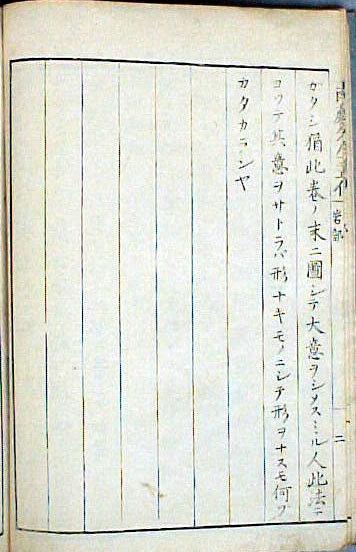 ガタシ猶此巻ノ末ニ圖シテ大意ヲシメスミル人此法ニ
ヨツテ其意ヲサトラバ形ナキモノニシテ形ヲナスモ何ゾ
カタカランヤ
岩部
二